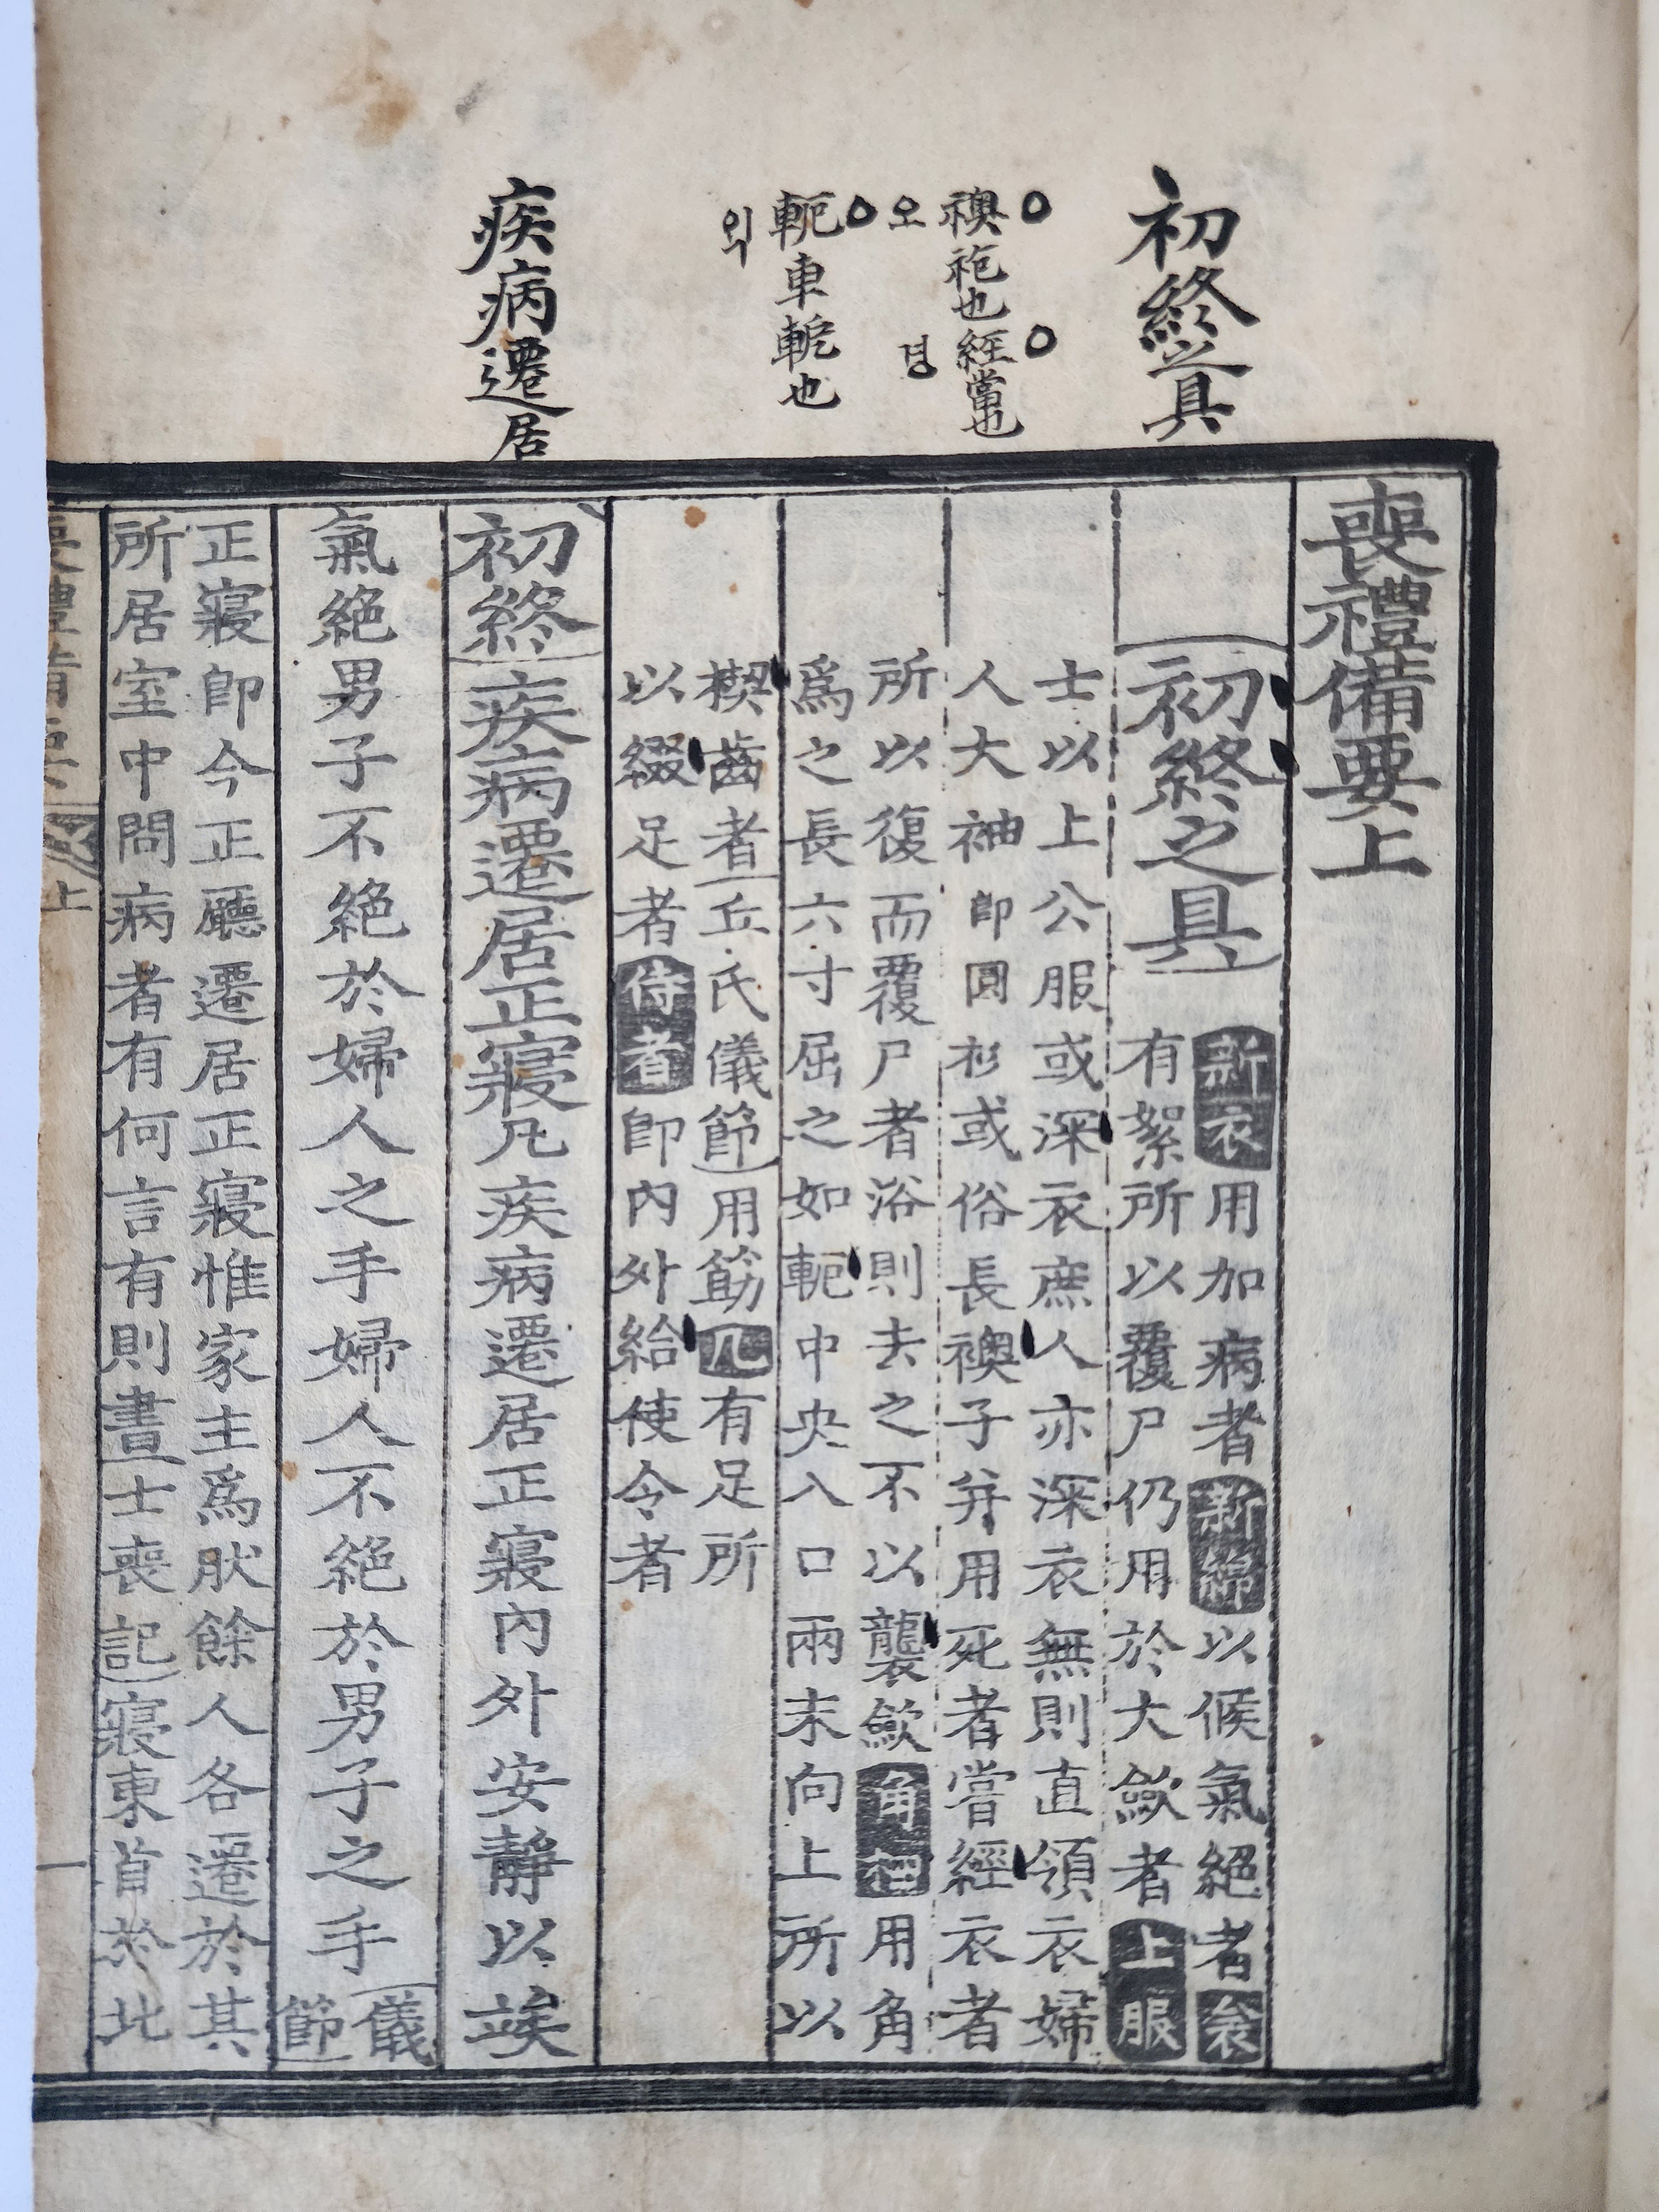 初終之具
襖袍也 經嘗也
오 경
軶車軶也
익
疾病遷居
喪禮備要上
初終之具
新衣用加病者新綿以候氣絕者衾
有絮所以覆尸仍用於大斂者上服
士以上公服或深衣庶人亦深衣無則直領衣婦
人大袖卽圓衫或俗長襖子并用死者嘗經衣者
所以復而覆尸者浴則去之不以襲斂角柶用角
爲之長六寸屈之如軶中央入口兩末向上所以
楔齒者丘氏儀節用筯几有足所
以綴足者侍者卽內外給使令者
初終疾病遷居正寢凡疾病遷居正寢內外安靜以竢
氣絕男子不絕於婦人之手婦人不絕於男子之手儀
節
正寢卽今正廳遷居正寢惟家主爲肰餘人各遷於其
所居室中問病者有何言有則書士喪記寢東首於北
喪禮備要 上 一